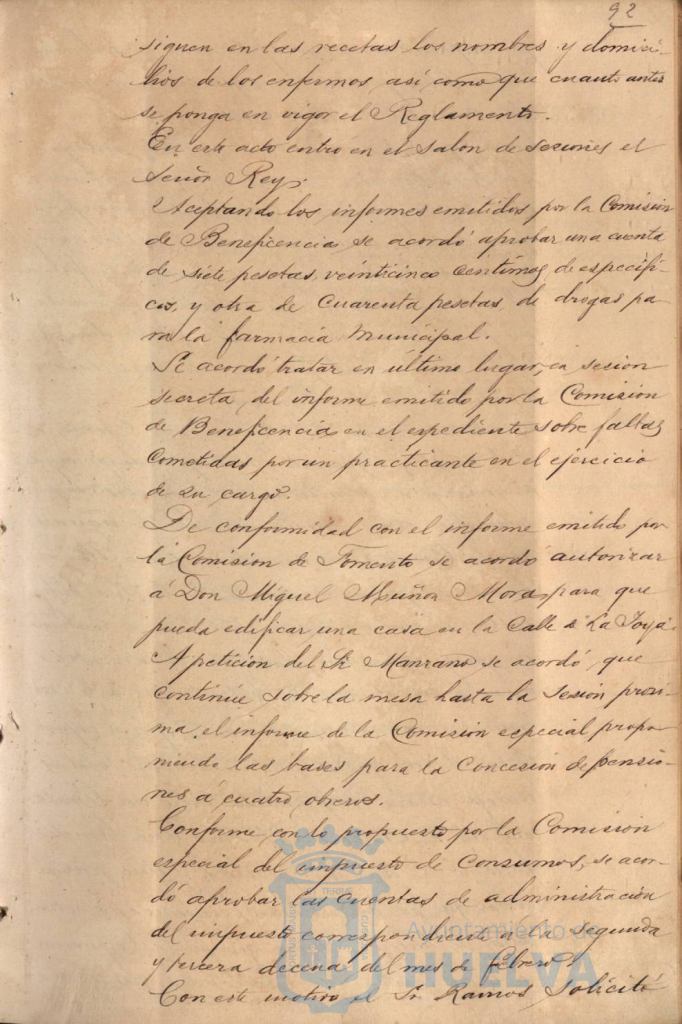 92
siguen en las recetas los nombres y domici-
lios de los enfermos así como que cuanto antes
se ponga en vigor el Reglamento.
En este acto entro en el salon de sesiones el
Señor Rey.
Aceptando los informes emitidos por la Comision
de Beneficencia se acordó aprobar una cuenta
de siete pesetas, veinticinco centimos de especifi-
cos, y otra de cuarenta pesetas, de drogas pa
ra la farmacia municipal.
Se acordó tratar en último lugar, en sesion
secreta del informe emitido por la Comision
de Beneficencia en el expediente sobre faltas
cometidas por un practicante en el ejercicio
de su cargo.
De conformidad con el informe emitido por
la Comision de Fomento se acordó autorizar
á Don Miguel Muñoz Moras para que
pueda edificar una casa en la Calle La Joya.
A peticion del Sr. Manzano se acordó que
continúe sobre la mesa hasta la sesion proxi-
ma, el informe de la Comision especial propo-
niendo las bases para la concesion de pensio-
nes á cuatro obreros.
Conforme con lo propuesto por la Comision
especial del impuesto de consumos, se acor-
dó aprobar las cuentas de administración
del impuesto correspondiente a la segunda
y tercera decena del mes de febrero.
Con este motivo el Sr. Ramos, solicitó
Ayuntamiento de
HUELVA